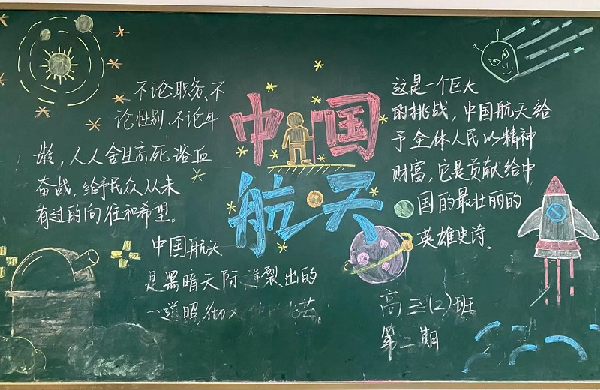 不论职务、不
论性别、不论年
龄，人人舍生忘死、浴血
奋战，给予民众从未
有过的向往和希望。
中国航天
是黑暗天际迸裂出的
一道照彻
中国
航天
这是一个巨大
的挑战，中国航天给
予全体人民以精神
财富，它是贡献给中
国的最壮丽的
英雄史诗。
高三(2)班
第二期